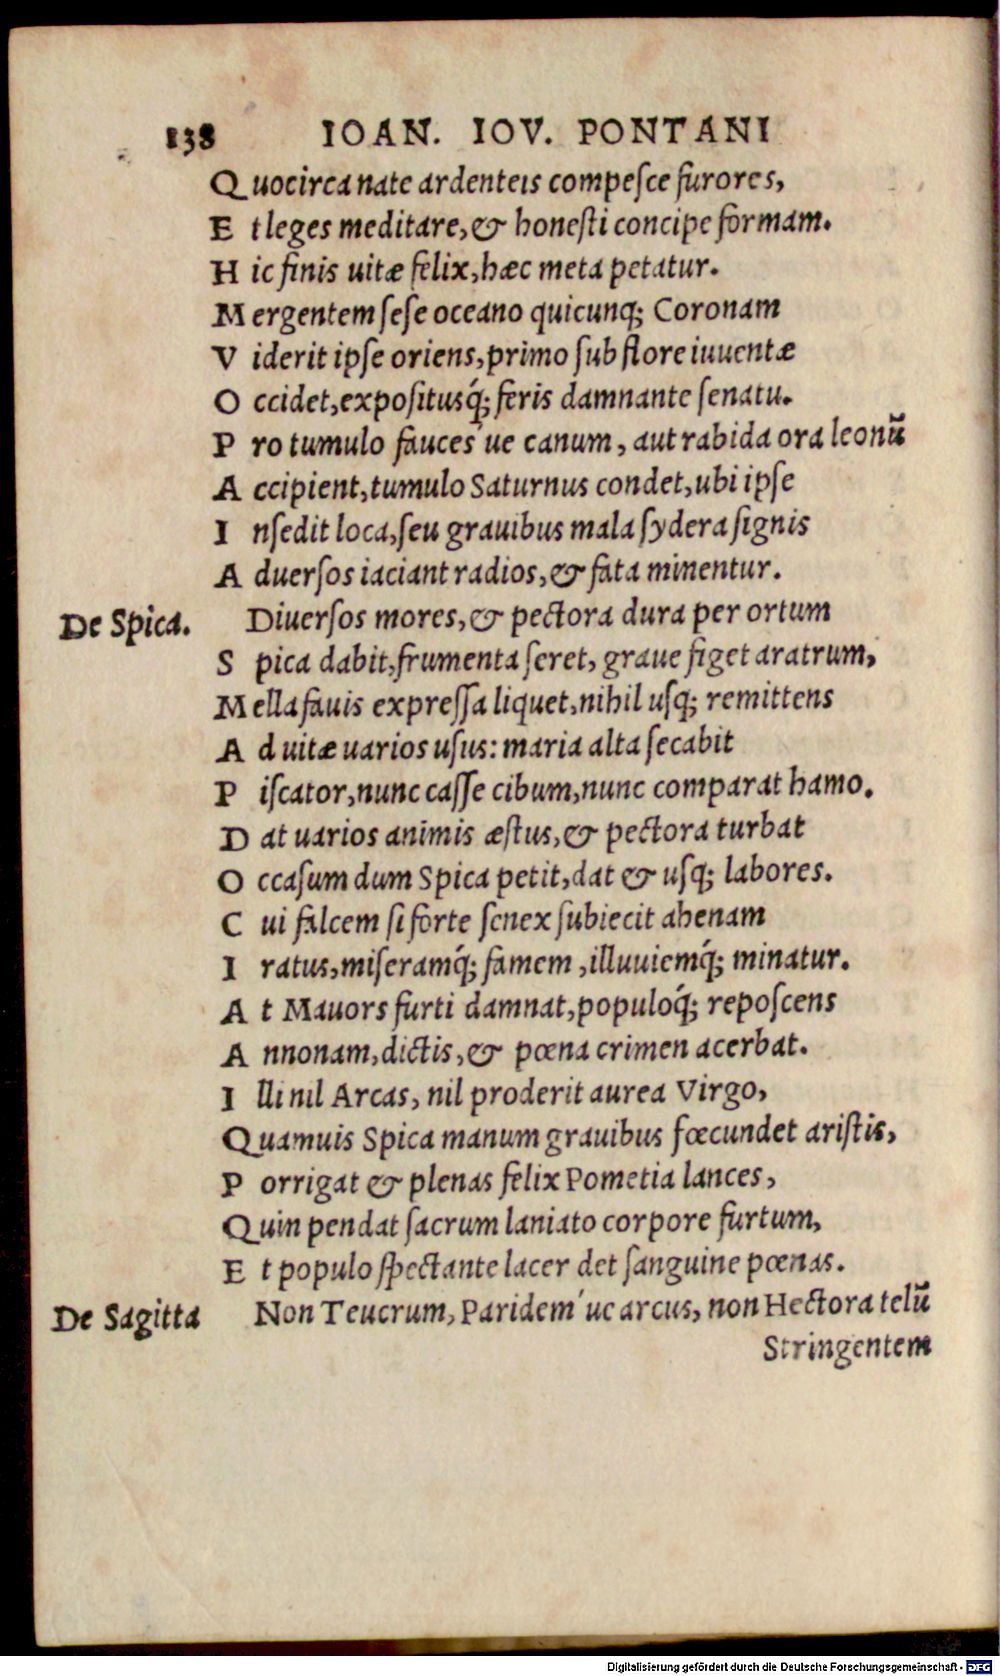 138 IOAN. IOV. PONTANI
Quocirca nate ardenteis compeſce furores,
E t leges meditare, & honeſti concipe formam.
H ic finis uitæ felix, hæc meta petatur.
M ergentem ſeſe oceano quicunq; Coronam
V iderit ipſe oriens, primo ſub flore iuuentæ
O ccidet, expoſitusq́; feris damnante ſenatu.
P ro tumulo fauces´ue canum, aut rabida ora leonū
A ccipient, tumulo Saturnus condet, ubi ipſe
I nſedit loca, ſeu grauibus mala ſydera ſignis
A duerſos iaciant radios, & fata minentur.
De Spica. Diuerſos mores, & pectora dura per ortum
S pica dabit, frumenta ſeret, graue figet aratrum,
M ella fauis expreſſa liquet, nihil uſq; remittens
A d uitæ uarios uſus: maria alta ſecabit
P iſcator, nunc caſſe cibum, nunc comparat hamo.
D at uarios animis æſtus, & pectora turbat
O ccaſum dum Spica petit, dat & uſq; labores.
C ui falcem ſi forte ſenex ſubiecit ahenam
I ratus, miſeramq́; famem, illuuiemq́; minatur.
A t Mauors furti damnat, populoq́; repoſcens
A nnonam, dictis, & pœna crimen acerbat.
I lli nil Arcas, nil proderit aurea Virgo,
Quamuis Spica manum grauibus fœcundet ariſtis,
P orrigat & plenas felix Pometia lances,
Quin pendat ſacrum laniato corpore furtum,
E t populo ſpectante lacer det ſanguine pœnas.
De Sagitta Non Teucrum, Paridem´ue arcus, non Hectora telū
Stringentem
Digitalisierung gefördert durch die Deutsche Forschungsgemeinschaft - DFG